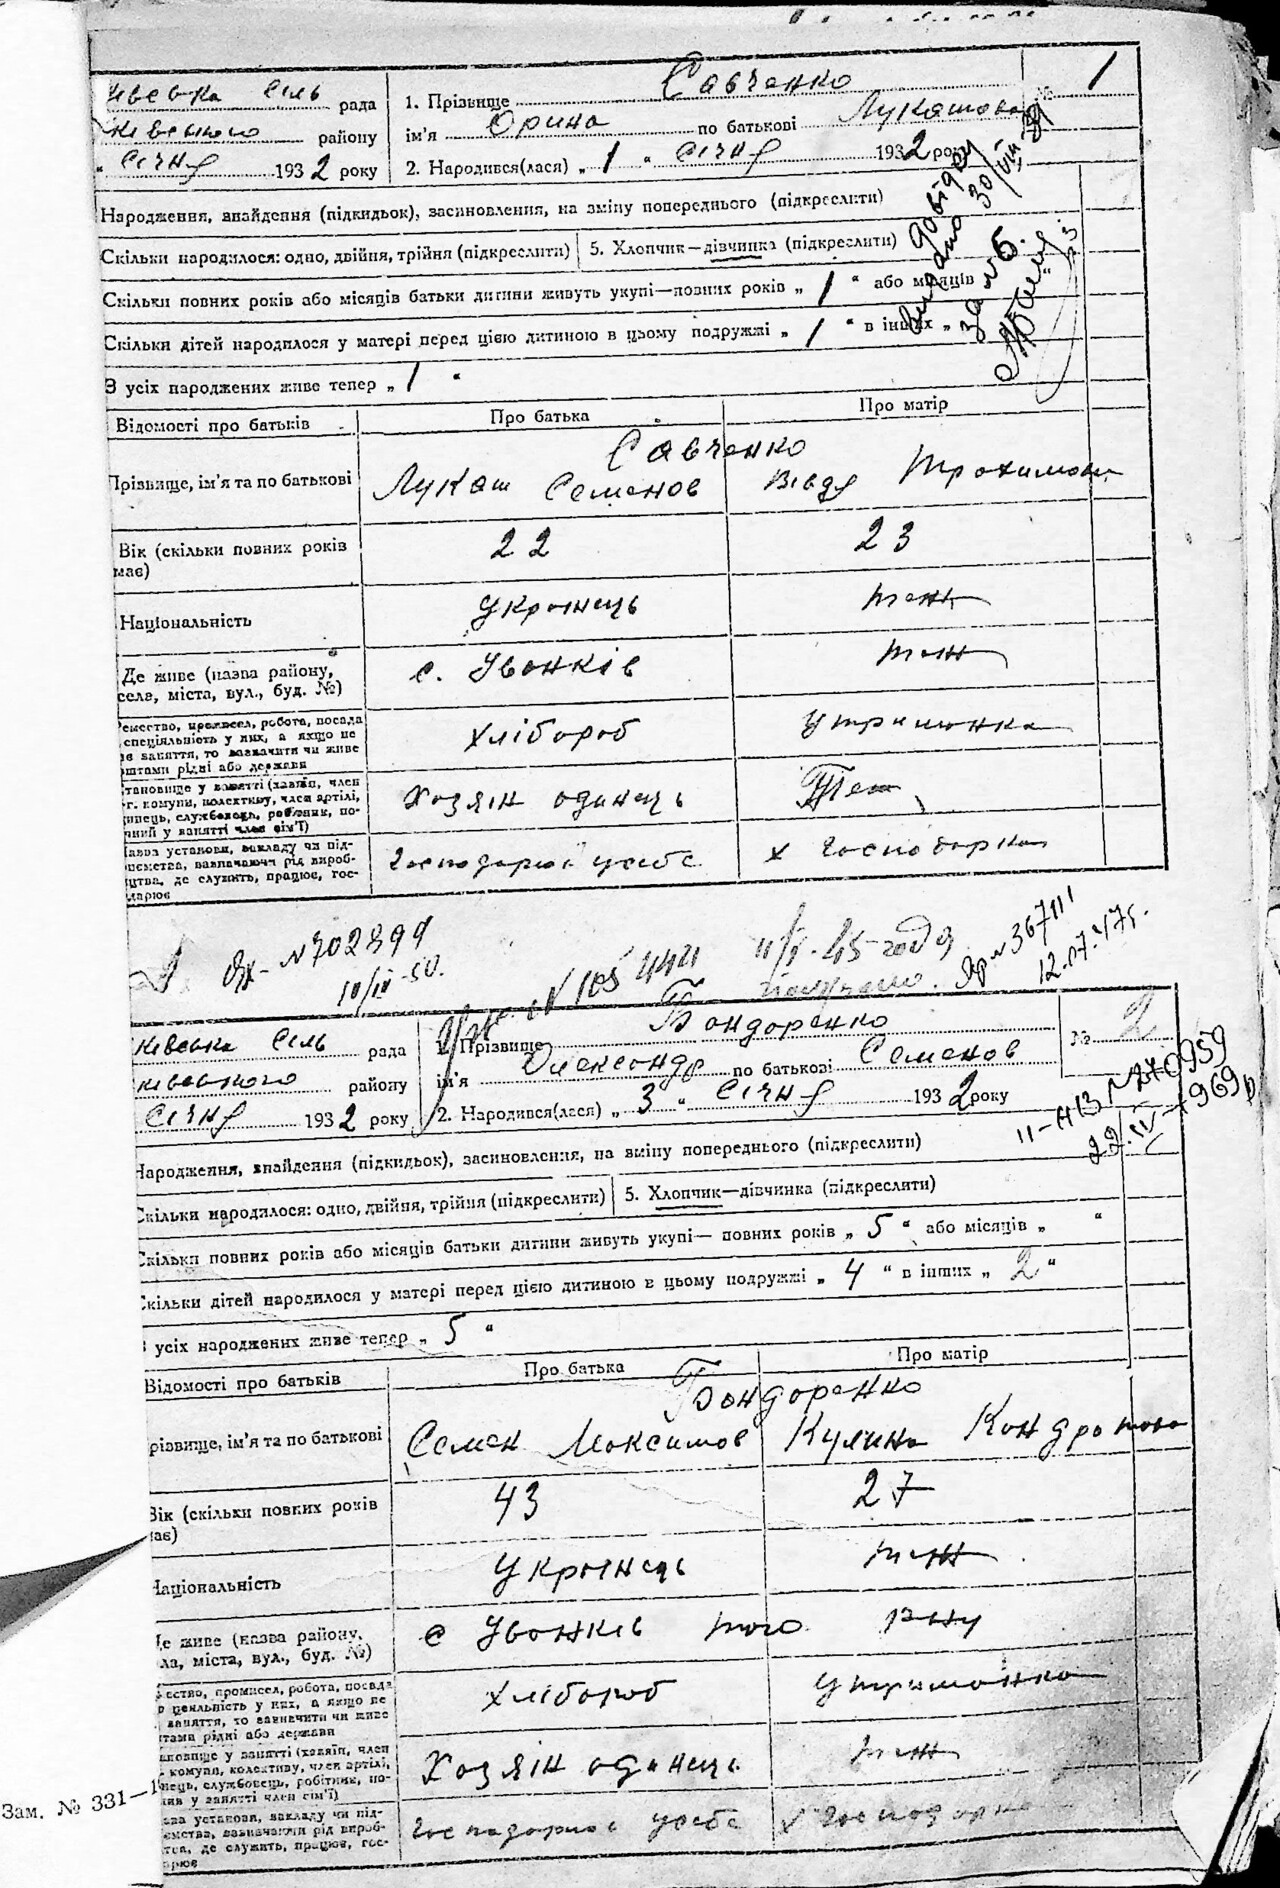 1. Прізвище Савченко № 1
ківська Сіль рада
ім'я Орина по батькові Лукашова
ківського району
" Січня 1932 року
2. Народився(лася) „ 1 " Січня 1932 року
Народження, знайдення (підкидьок), засиновлення, на зміну попереднього (підкреслити)
Скільки народилося: одно, двійня, трійня (підкреслити) 5. Хлопчик—дівчинка (підкреслити)
Скільки повних років або місяців батьки дитини живуть укупі—повних років „ 1 " або місяців "
Скільки дітей народилося у матері перед цією дитиною в цьому подружжі „ 1 " в інших „
З усіх народжених живе тепер „ 1 "
видано довідку 30/VIII
за № 6.
Відомості про батьків Про батька Про матір
Савченко
Прізвище, ім'я та по батькові Лукаш Семенов Вівдя Трохимова
Вік (скільки повних років має) 22 23
Національність Украінець теж
Де живе (назва району, села, міста, вул., буд. №) с. Увонків теж
ремество, промисел, робота, посада
спеціяльність у них, а якщо не
має заняття, то зазначити чи живе
коштами рідні або держави
Хлібороб Утриманка
становище у занятті (хазяїн, член
с.-г. комуни, колективу, член артілі,
одинець, службовець, робітник, по-
мічний у занятті член сім'ї)
Хозяін одинець Теж
Назва установи, закладу чи під-
приємства, зазначаючи рід вироб-
ництва, де служить, працює, гос-
подарює
Господарює у себе х Господарка
№ 702899
10/IV-50.
№ 105 444 11/V-45 года
получено.
№ 367111
12.07.47г.
1. Прізвище Бондаренко № 2
ківська Сіль рада
ім'я Олександр по батькові Семенов
ківського району
Січня 1932 року
2. Народився(лася) „ 3 " Січня 1932 року
II-НЗ № 270959
22.IV-1969р
Народження, знайдення (підкидьок), засиновлення, на зміну попереднього (підкреслити)
Скільки народилося: одно, двійня, трійня (підкреслити) 5. Хлопчик—дівчинка (підкреслити)
Скільки повних років або місяців батьки дитини живуть укупі— повних років „ 5 " або місяців „ "
Скільки дітей народилося у матері перед цією дитиною в цьому подружжі „ 4 " в інших „ 2 "
З усіх народжених живе тепер „ 5 "
Відомості про батьків Про батька Про матір
Бондоренко
Прізвище, ім'я та по батькові Семен Максимов Кулина Кондратова
Вік (скільки повних років має) 43 27
Національність Украінець теж
Де живе (назва району, села, міста, вул., буд. №) с Увонків того р-ну
ремество, промисел, робота, посада
спеціяльність у них, а якщо не
має заняття, то зазначити чи живе
коштами рідні або держави
Хлібороб Утриманка
становище у занятті (хазяїн, член
комуни, колективу, член артілі,
одинець, службовець, робітник, по-
мічний у занятті член сім'ї)
Хозяін одинець теж
Назва установи, закладу чи під-
приємства, зазначаючи рід вироб-
ництва, де служить, працює, гос-
подарює
Господарює у себе х Господарка
Зам. № 331—1